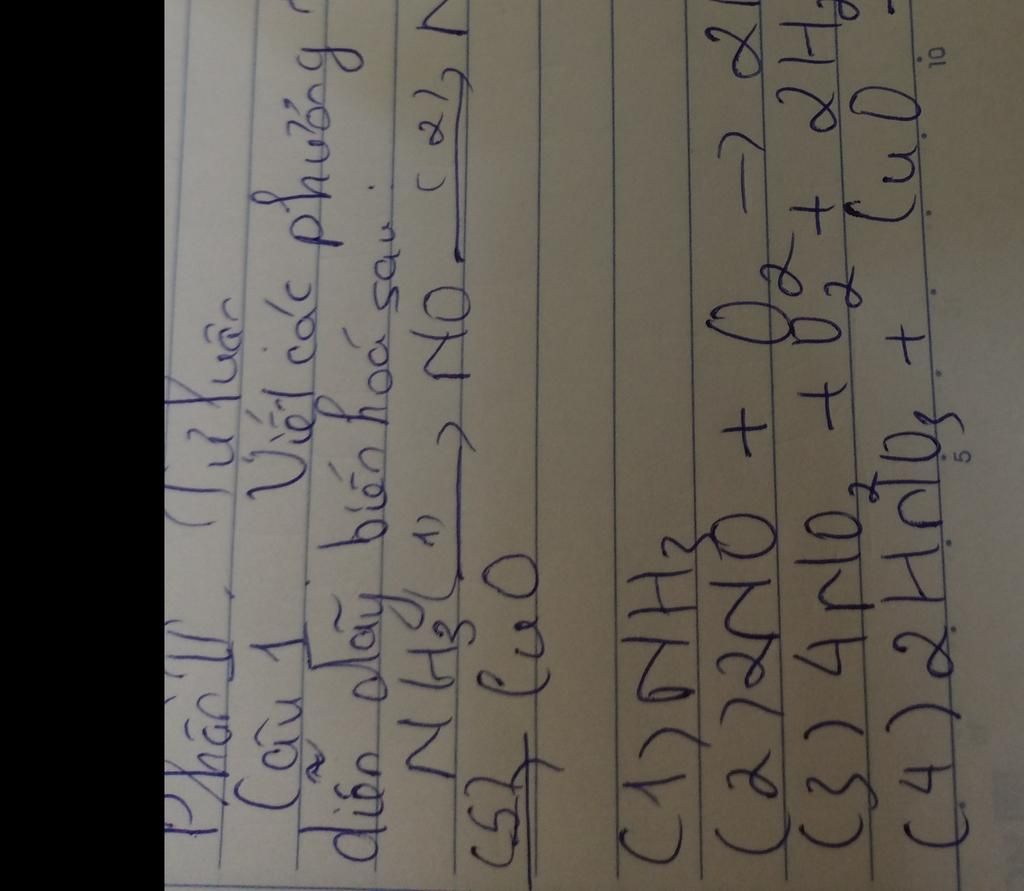 Phần II. Tự luận
Câu 1 Viết các phương
diễn dãy biến hoá sau.
NH3 (1) → NO (2) → N
(5) → CuO
(1) NH3
(2) 2NO + O2 → 2
(3) 4NO2 + O2 + 2H2
(4) 2HNO3 + CuO
5 10